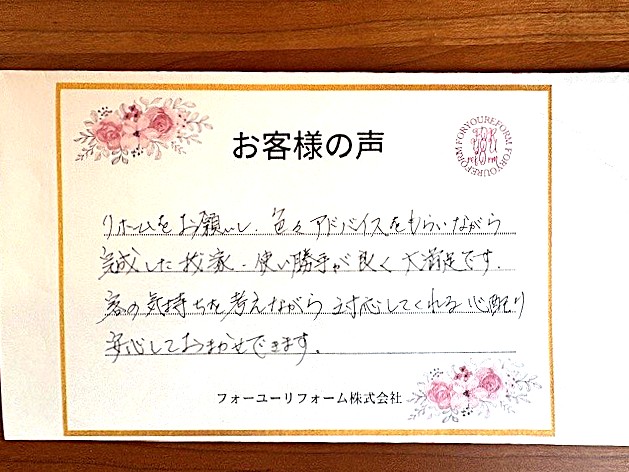 お客様の声
FORYOUREFORM FORYOUREFORM
リホームをお願いし、色々アドバイスをもらいながら
完成した我家、使い勝手が良く大満足です。
客の気持ちを考えながら対応してくれる心配り
安心しておまかせできます。
フォーユーリフォーム株式会社